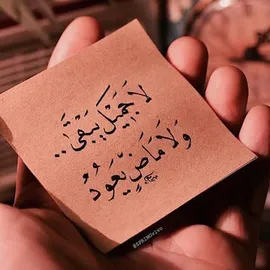 لَا جَمِيْلَ يَبْقَىٰ ..
وَلَا مَاضٍ يَّعُودُ